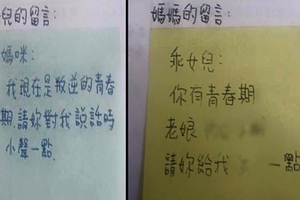 兒的留言:
媽咪:
我現在是叛逆的青春
期.請妳對我說話時
小聲一點.
媽媽的留言:
乖女兒:
你有青春期
老娘
請妳給我 一點